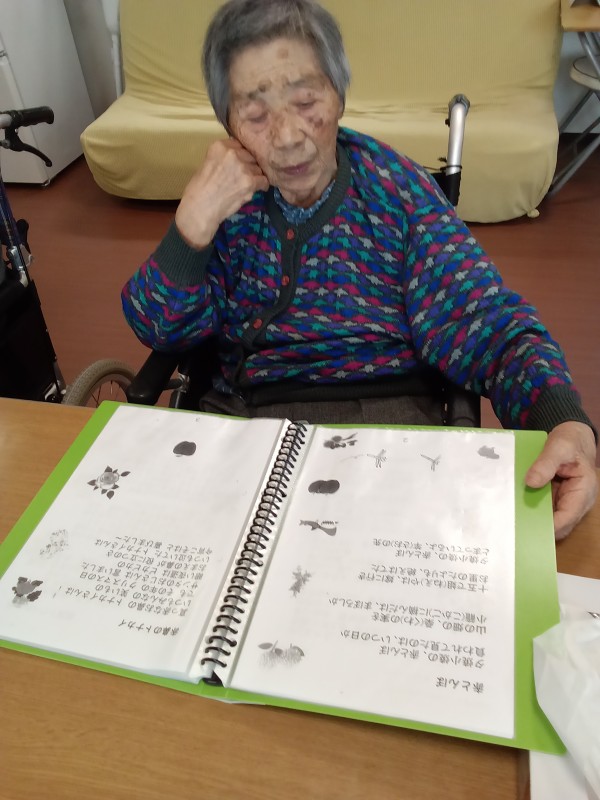 赤とんぼ
夕焼小焼の、赤とんぼ
負われて見たのは、いつの日か
山の畑の、桑(くわ)の実を
小籠(こかご)に摘んだは、まぼろしか
十五で姐(ねえ)やは、嫁に行き
お里のたよりも、絶えはてた
夕焼小焼の、赤とんぼ
とまっているよ、竿(さお)の先
赤鼻のトナカイ
真っ赤なお鼻の トナカイさんは
いつもみんなの 笑いもの
でも その年の クリスマスの日
サンタのおじさんは 言いました
暗い夜道は ぴかぴかの
おまえの鼻が 役に立つのさ
いつも泣いてた トナカイさんは
今宵こそはと 喜びました